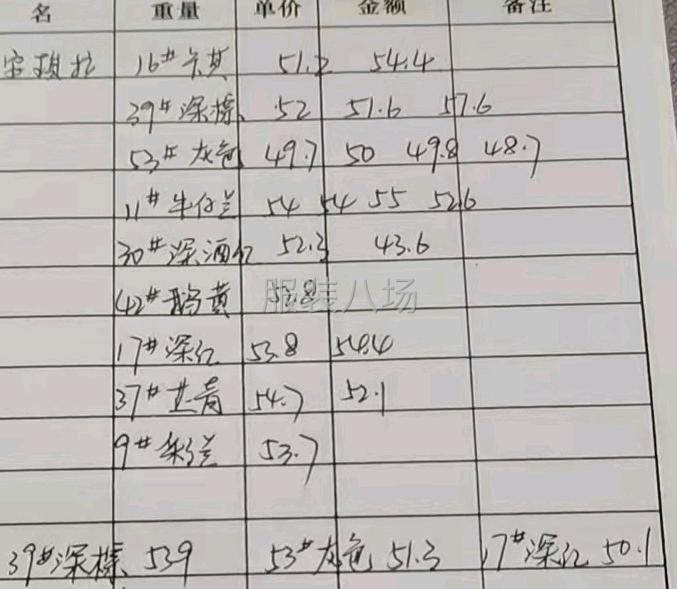 名 重量 单价 金额 备注
16#卡其 51.2 54.4
39#深 52 51.6 57.6
53#灰色 49.7 50 49.8 48.7
11#牛仔兰 54 54 55 52.6
30#深酒红 52.3 43.6
42# 黄
服装八场
17#深红 53.8 54.4
37# 青 54.7 52.1
9# 兰 53.7
39#深 539 53#灰色 51.3 17#深红 50.1